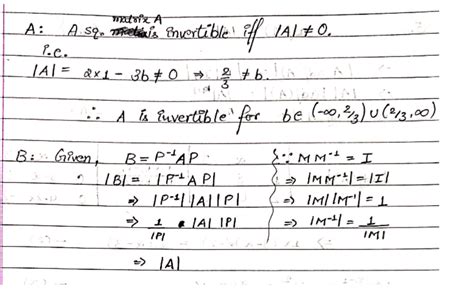 A: A sq. matrix A is invertible iff |A| ≠ 0.
i.e.
|A| = 2×1 - 3b ≠ 0 ⇒ 2/3 ≠ b.
∴ A is invertible for b∈ (-∞, 2/3) ∪ (2/3, ∞)
B: Given, B = P⁻¹AP
|B| = |P⁻¹AP|
⇒ |P⁻¹| |A| |P|
⇒ 1/|P| • |A| |P|
⇒ |A|
∵ MM⁻¹ = I
⇒ |MM⁻¹| = |I|
⇒ |M| |M⁻¹| = 1
⇒ |M⁻¹| = 1/|M|